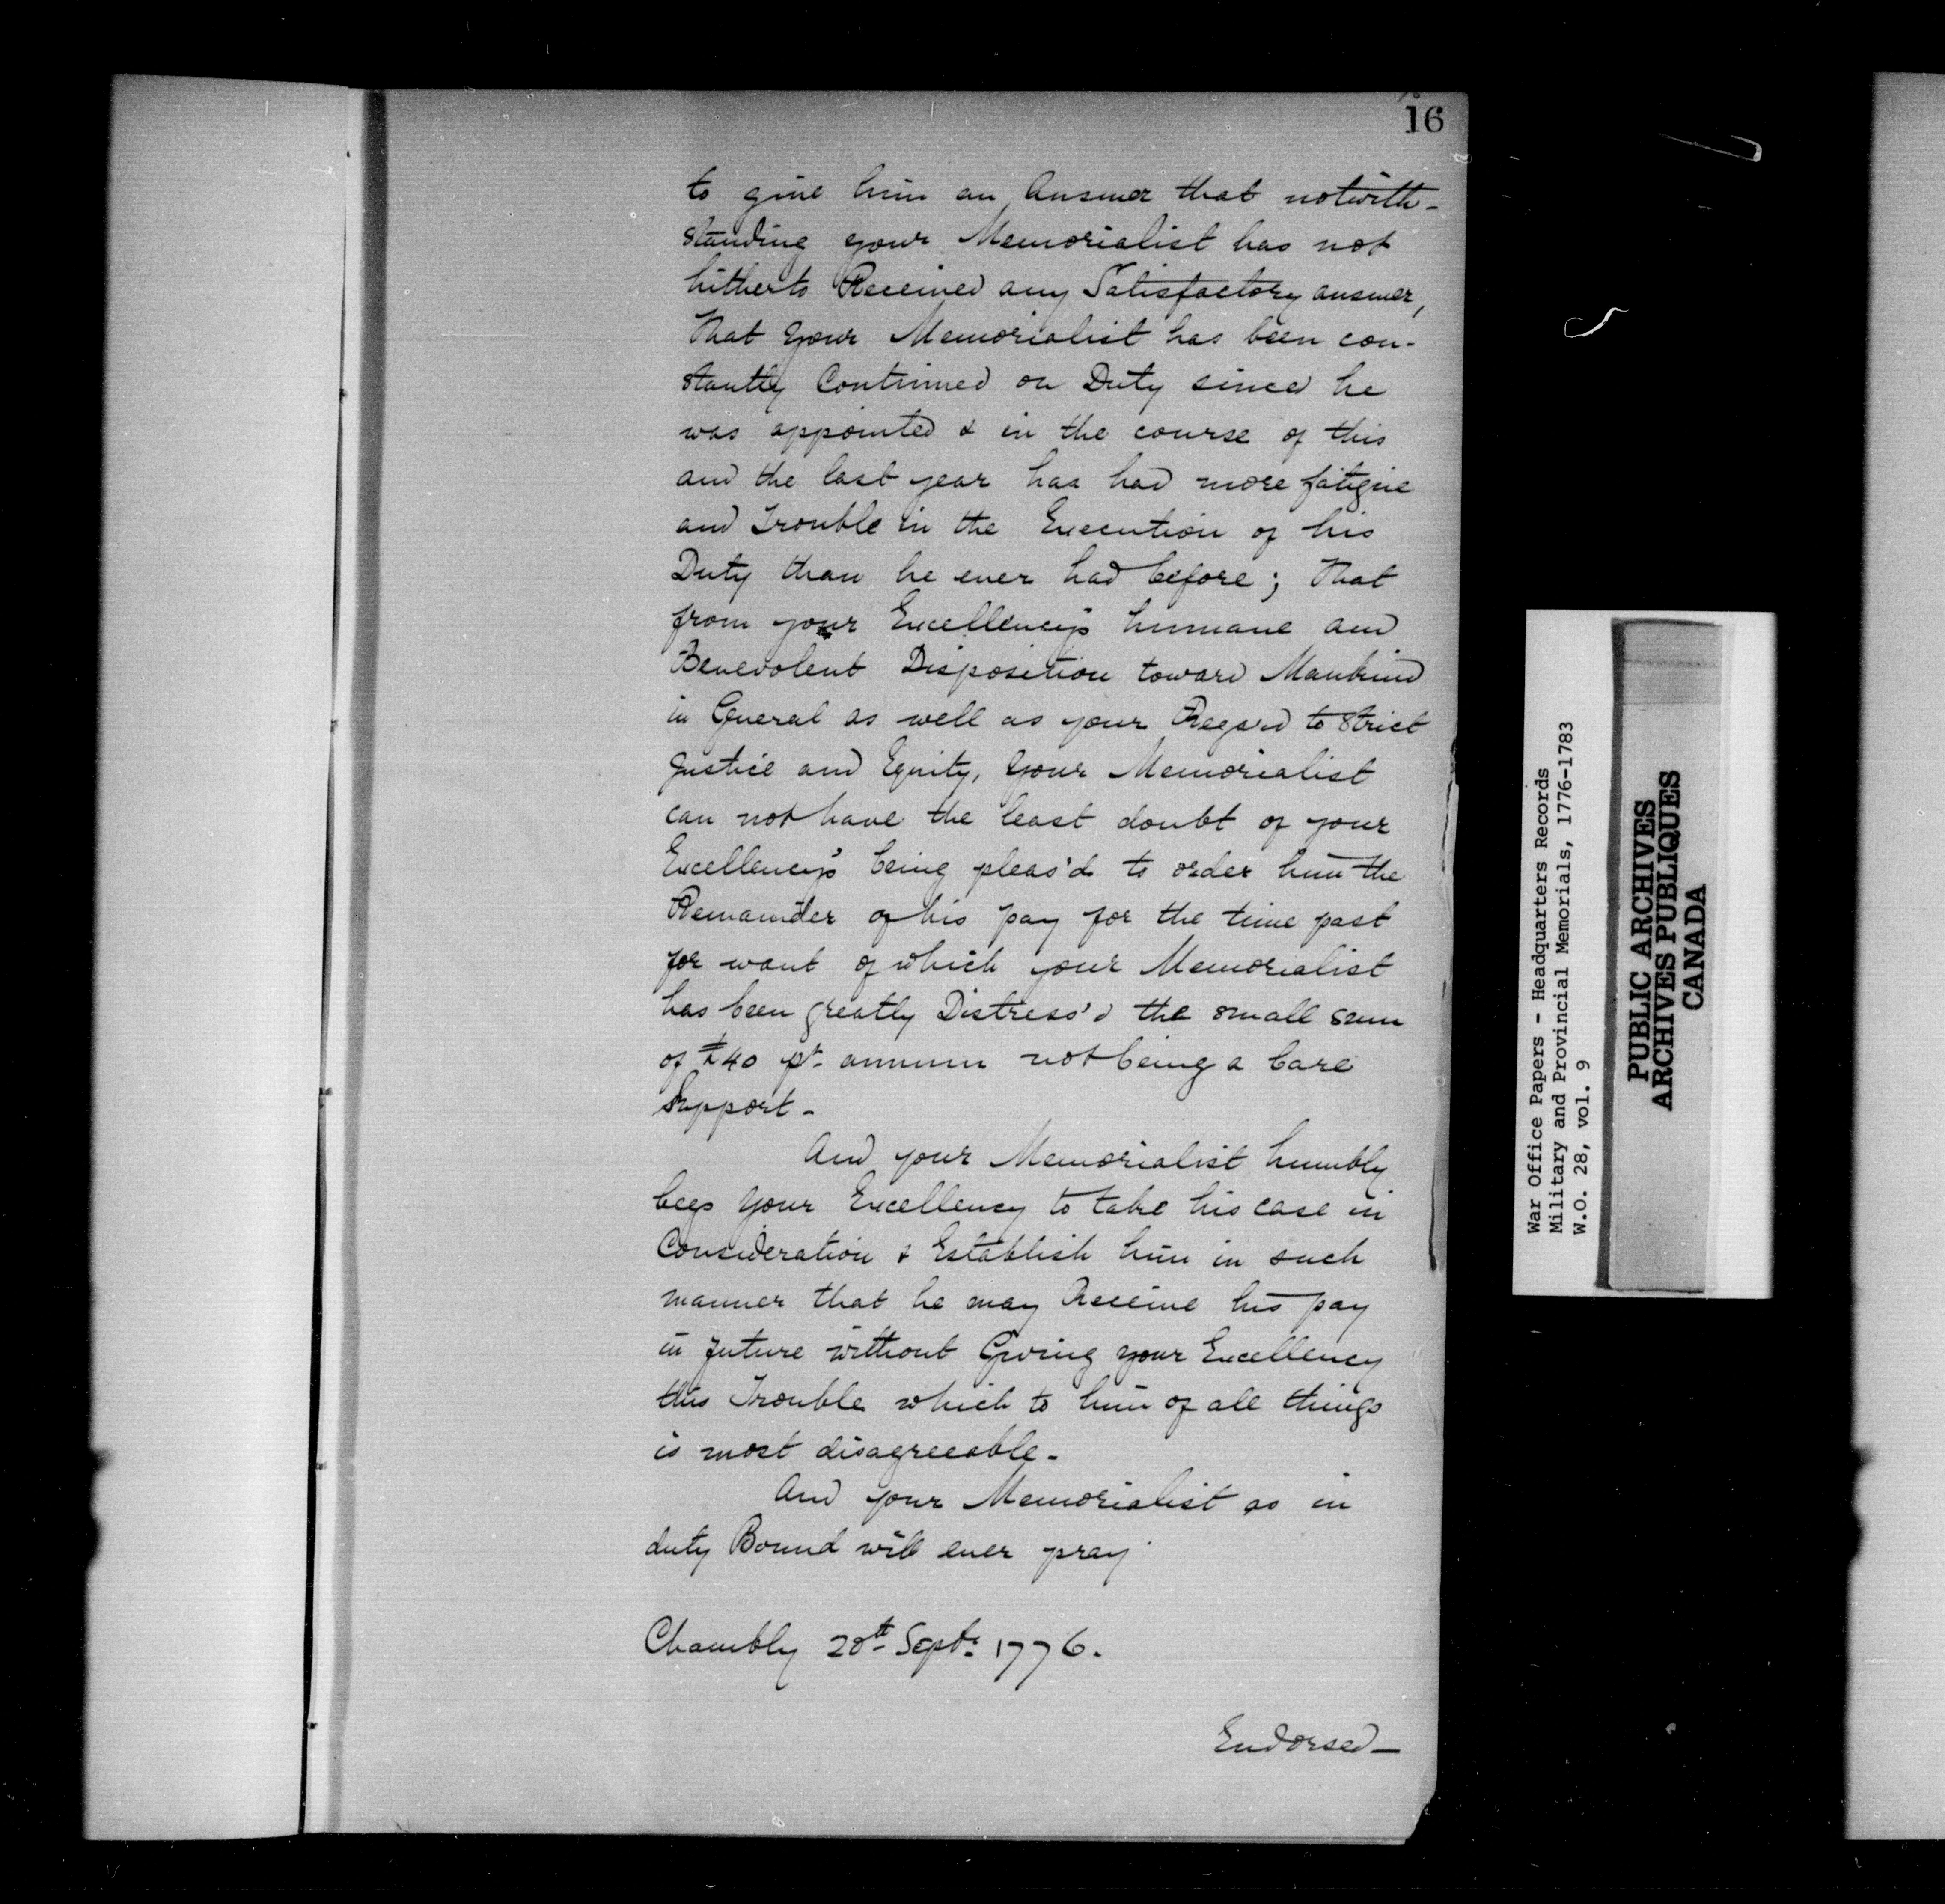 16
to give him an Answer that notwith-
standing your Memorialist has not
hitherto Received any Satisfactory answer,
That your Memorialist has been con-
stantly Continued on Duty since he
was appointed & in the course of this
and the last year has had more fatigue
and Trouble in the Execution of his
Duty than he ever had before; That
from your Excellency's humane and
Benevolent Disposition toward Mankind
in General as well as your Regard to strict
Justice and Equity, your Memorialist
can not have the least doubt of your
Excellency's being pleas'd to order him the
Remainder of his pay for the time past
for want of which your Memorialist
has been greatly Distress'd the small sum
of £40 pr. annum not being a bare
Support -
And your Memorialist humbly
begs your Excellency to take his case in
Consideration & Establish him in such
manner that he may Receive his pay
in future without Giving your Excellency
this Trouble which to him of all things
is most disagreeable -
And your Memorialist as in
duty Bound will ever pray
Chambly 28th Septr. 1776.
Endorsed -
War Office Papers - Headquarters Records
Military and Provincial Memorials, 1776-1783
W.O. 28, vol. 9
PUBLIC ARCHIVES
ARCHIVES PUBLIQUES
CANADA